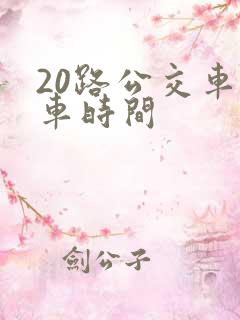 20路公交车
车時間
劍公子